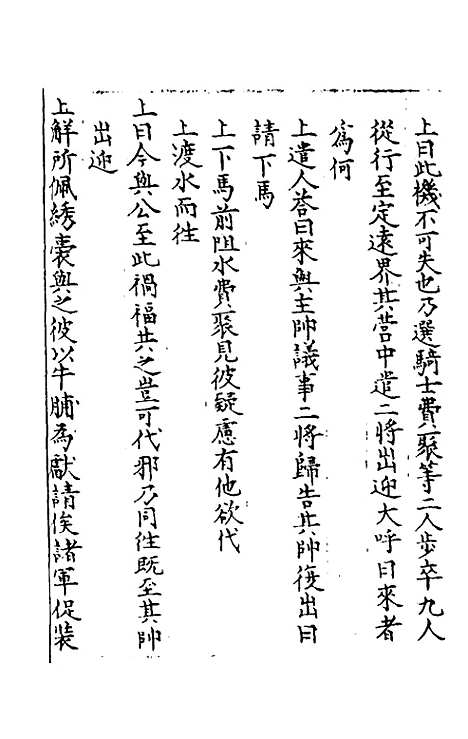 上曰此機不可失也乃選騎士費聚等二人步卒九人
從行至定遠界其营中遣二將出迎大呼曰來者
為何
上遣人荅曰來與主帥議事二將歸告其帥復出曰
請下馬
上下馬前阻水費聚見彼疑慮有他欲代
上渡水而往
上曰今與公至此禍福共之豈可代邪乃同往既至其帥
出迎
上解所佩綉囊與之彼以牛脯為獻請俟諸軍促裝